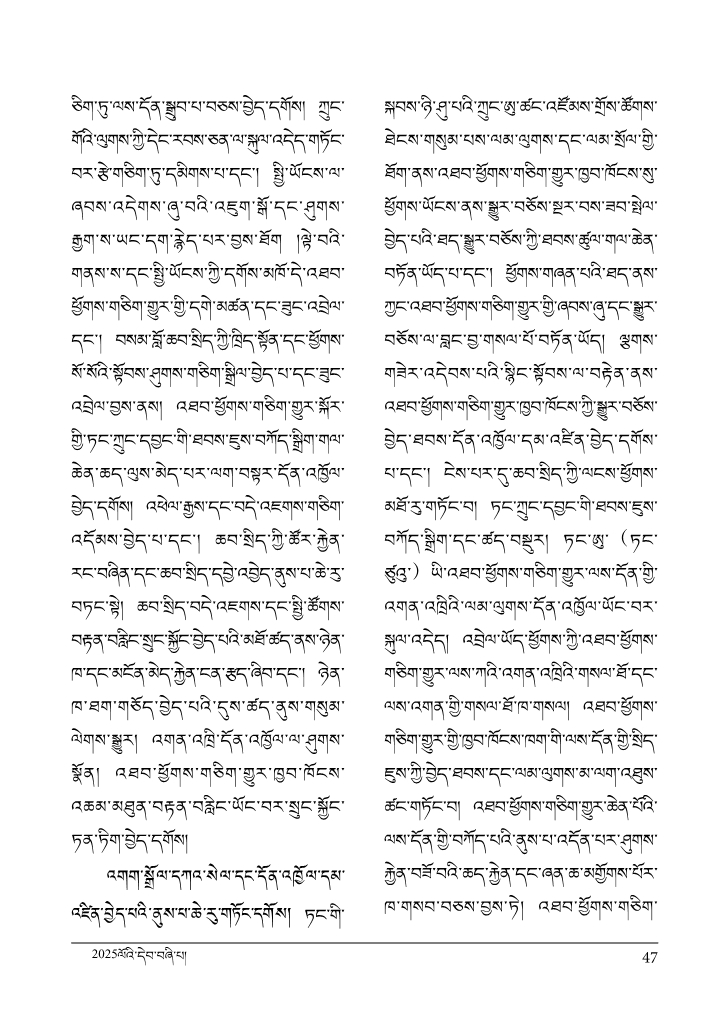 ཅིག་ཏུ་ལས་དོན་སྒྲུབ་པ་བཅས་བྱེད་དགོས། ཀྲུང་
གོའི་ལུགས་ཀྱི་དེང་རབས་ཅན་ལ་སྐུལ་འདེད་གཏོང་
བར་རྩེ་གཅིག་ཏུ་དམིགས་པ་དང་། སྤྱི་ཡོངས་ལ་
ཞབས་འདེགས་ཞུ་བའི་འཇུག་སྒོ་དང་ཤུགས་
རྒྱག་ས་ཡང་དག་རྙེད་པར་བྱས་ཐོག །ལྟེ་བའི་
གནས་ས་དང་སྤྱི་ཡོངས་ཀྱི་དགོས་མཁོ་དེ་འཐབ་
ཕྱོགས་གཅིག་གྱུར་གྱི་དགེ་མཚན་དང་ཟུང་འབྲེལ་
དང་། བསམ་བློ་ཆབ་སྲིད་ཀྱི་ཁྲིད་སྟོན་དང་ཕྱོགས་
སོ་སོའི་སྟོབས་ཤུགས་གཅིག་སྒྲིལ་བྱེད་པ་དང་ཟུང་
འབྲེལ་བྱས་ནས། འཐབ་ཕྱོགས་གཅིག་གྱུར་སྐོར་
གྱི་ཏང་ཀྲུང་དབྱང་གི་ཐབས་ཇུས་བཀོད་སྒྲིག་གལ་
ཆེན་ཆད་ལུས་མེད་པར་ལག་བསྟར་དོན་འཁྱོལ་
བྱེད་དགོས། འཕེལ་རྒྱས་དང་བདེ་འཇགས་གཅིག་
འདོམས་བྱེད་པ་དང་། ཆབ་སྲིད་ཀྱི་ཚོར་རྐྱེན་
རང་བཞིན་དང་ཆབ་སྲིད་དབྱེ་འབྱེད་ནུས་པ་ཆེ་རུ་
བཏང་སྟེ། ཆབ་སྲིད་བདེ་འཇགས་དང་སྤྱི་ཚོགས་
བརྟན་བརླིང་སྲུང་སྐྱོང་བྱེད་པའི་མཐོ་ཚད་ནས་ཉེན་
ཁ་དང་མངོན་མེད་རྐྱེན་ངན་རྩད་ཞིབ་དང་། ཉེན་
ཁ་ཐག་གཅོད་བྱེད་པའི་དུས་ཚད་ནུས་གསུམ་
ལེགས་སྒྱུར། འགན་འཁྲི་དོན་འཁྱོལ་ལ་ཤུགས་
སྣོན། འཐབ་ཕྱོགས་གཅིག་གྱུར་ཁྱབ་ཁོངས་
འཆམ་མཐུན་བརྟན་བརླིང་ཡོང་བར་སྲུང་སྐྱོང་
ཏན་ཏིག་བྱེད་དགོས།
འགག་སྒྲོལ་དཀའ་སེལ་དང་དོན་འཁྱོལ་དམ་
འཛིན་བྱེད་པའི་ནུས་པ་ཆེ་རུ་གཏོང་དགོས། ཏང་གི་
སྐབས་ཉི་ཤུ་པའི་ཀྲུང་ཨུ་ཚང་འཛོམས་གྲོས་ཚོགས་
ཐེངས་གསུམ་པས་ལམ་ལུགས་དང་ལམ་སྲོལ་གྱི་
ཐོག་ནས་འཐབ་ཕྱོགས་གཅིག་གྱུར་ཁྱབ་ཁོངས་སུ་
ཕྱོགས་ཡོངས་ནས་སྒྱུར་བཅོས་སྔར་བས་ཟབ་སྤེལ་
བྱེད་པའི་ཐད་སྒྱུར་བཅོས་ཀྱི་ཐབས་ཚུལ་གལ་ཆེན་
བཏོན་ཡོད་པ་དང་། ཕྱོགས་གཞན་པའི་ཐད་ནས་
ཀྱང་འཐབ་ཕྱོགས་གཅིག་གྱུར་གྱི་ཞབས་ཞུ་དང་སྒྱུར་
བཅོས་ལ་བླང་བྱ་གསལ་པོ་བཏོན་ཡོད། ལྕགས་
གཟེར་འདེབས་པའི་སྙིང་སྟོབས་ལ་བརྟེན་ནས་
འཐབ་ཕྱོགས་གཅིག་གྱུར་ཁྱབ་ཁོངས་ཀྱི་སྒྱུར་བཅོས་
བྱེད་ཐབས་དོན་འཁྱོལ་དམ་འཛིན་བྱེད་དགོས་
པ་དང་། ངེས་པར་དུ་ཆབ་སྲིད་ཀྱི་ལངས་ཕྱོགས་
མཐོ་རུ་གཏོང་བ། ཏང་ཀྲུང་དབྱང་གི་ཐབས་ཇུས་
བཀོད་སྒྲིག་དང་ཚད་བསྡུར། ཏང་ཨུ་ (ཏང་
ཙུའུ་) ཡི་འཐབ་ཕྱོགས་གཅིག་གྱུར་ལས་དོན་གྱི་
འགན་འཁྲིའི་ལམ་ལུགས་དོན་འཁྱོལ་ཡོང་བར་
སྐུལ་འདེད། འབྲེལ་ཡོད་ཕྱོགས་ཀྱི་འཐབ་ཕྱོགས་
གཅིག་གྱུར་ལས་ཀའི་འགན་འཁྲིའི་གསལ་ཐོ་དང་
ལས་འགན་གྱི་གསལ་ཐོ་ཁ་གསལ། འཐབ་ཕྱོགས་
གཅིག་གྱུར་གྱི་ཁྱབ་ཁོངས་ཁག་གི་ལས་དོན་གྱི་སྲིད་
ཇུས་ཀྱི་བྱེད་ཐབས་དང་ལམ་ལུགས་མ་ལག་འཐུས་
ཚང་གཏོང་བ། འཐབ་ཕྱོགས་གཅིག་གྱུར་ཆེན་པོའི་
ལས་དོན་གྱི་བཀོད་པའི་ནུས་པ་འདོན་པར་ཤུགས་
རྐྱེན་བཟོ་བའི་ཆད་རྐྱེན་དང་ཞན་ཆ་མགྱོགས་པོར་
ཁ་གསབ་བཅས་བྱས་ཏེ། འཐབ་ཕྱོགས་གཅིག་
2025ལོའི་དེབ་བཞི་པ།
47